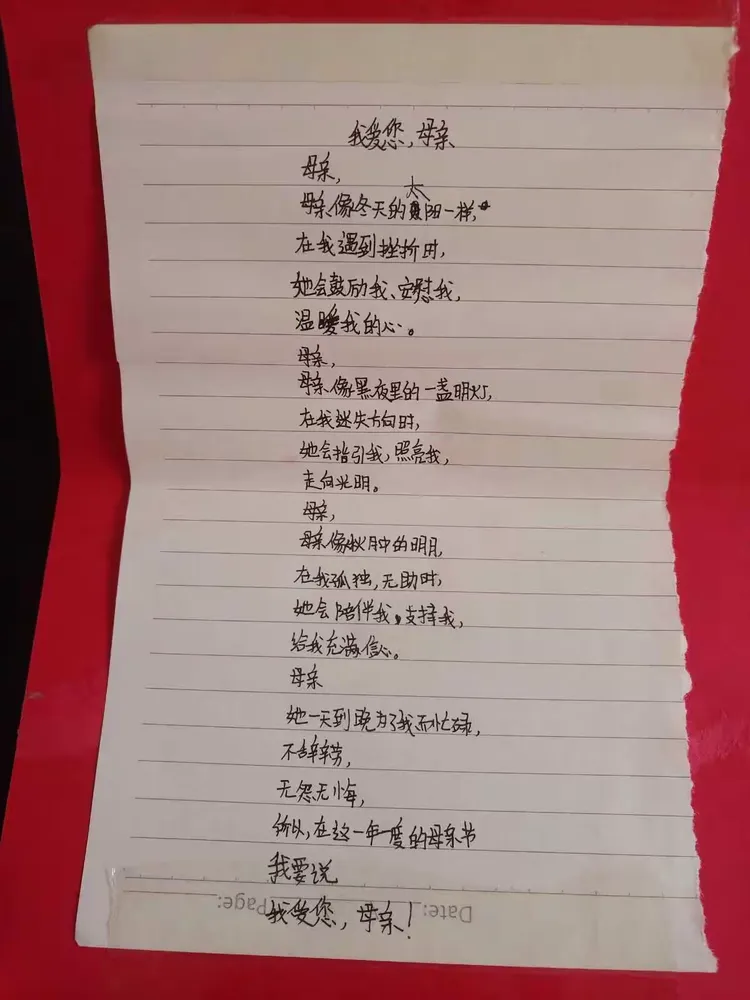 我爱您，母亲
母亲，
母亲像冬天的太阳一样，
在我遇到挫折时，
她会鼓励我、安慰我，
温暖我的心。
母亲，
母亲像黑夜里的一盏明灯，
在我迷失方向时，
她会指引我，照亮我，
走向光明。
母亲，
母亲像秋月中的明月，
在我孤独，无助时，
她会陪伴我，支持我，
给我充满信心。
母亲
她一天到晚为了我而忙碌，
不辞辛劳，
无怨无悔，
所以，在这一年一度的母亲节
我要说
我爱您，母亲！
Date: Page: